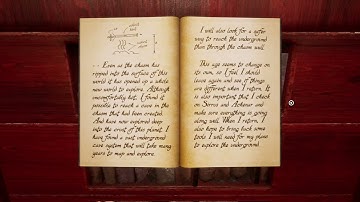 -- Even as the chasm has
ripped into the surface of this
world it has opened up a whole
new world to explore. Although
uncomfortably hot, I found it
possible to reach a cave in the
chasm that had been created.
And have now explored deep
into the crust of this planet. I
have found a vast underground
cave system that will take many
years to map and explore.
I will also look for a safer
way to reach the underground
than through the chasm wall.
This age seems to change on
its own, so I feel I should
leave again and see if things
are different when I return. It
is also important that I check
on Sirrus and Achenar and
make sure everything is going
along well. When I return, I
also hope to bring back some
tools I will need for my plans
to explore the underground